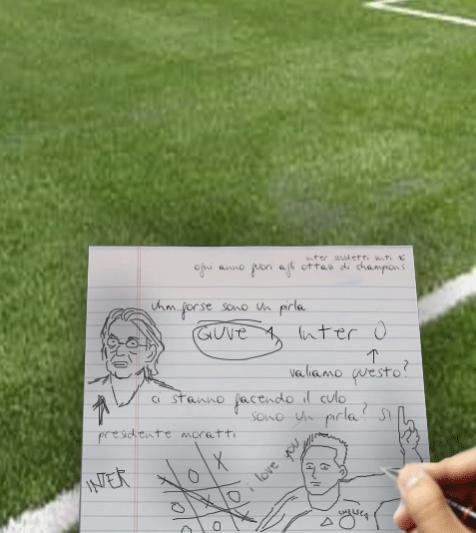 inter scudetti vinti 15
ogni anno fuori agli ottavi di champions
uhm forse sono un pirla
GIUVE 1 Inter 0
valiamo questo?
ci stanno facendo il culo
sono un pirla? si
presidente moratti
INTER
X
O
O
O
i love you
CHELSEA